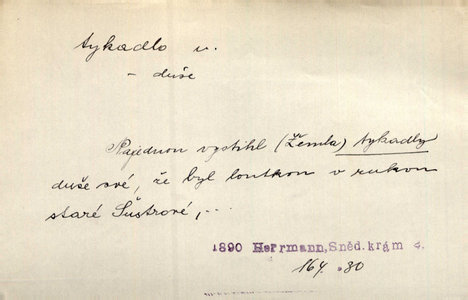 tykadlo n.
– duše
Pojednou vystihl (Žemla) tykadly
duše své, že byl loutkou v rukou
staré Šustrové,...
1890 Herrmann, Snéd. krám s.
164. 80